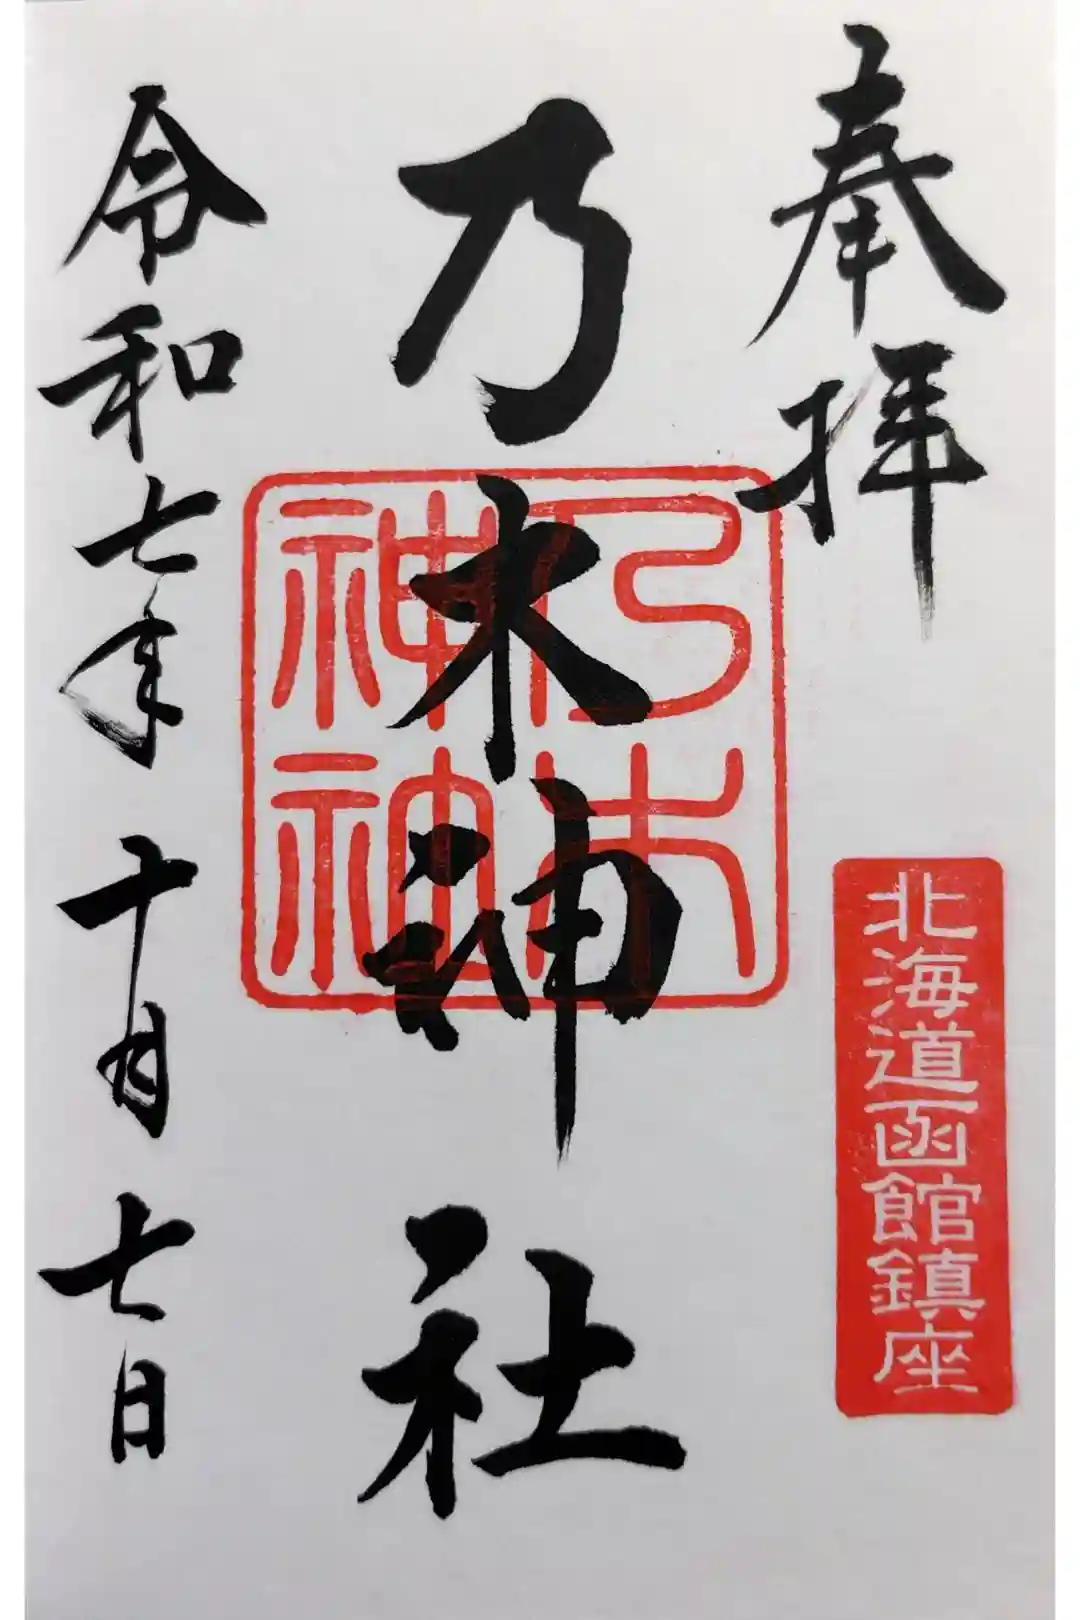 奉拝
北海道函館鎮座
乃木神社
乃木
神社
令和七年十月七日